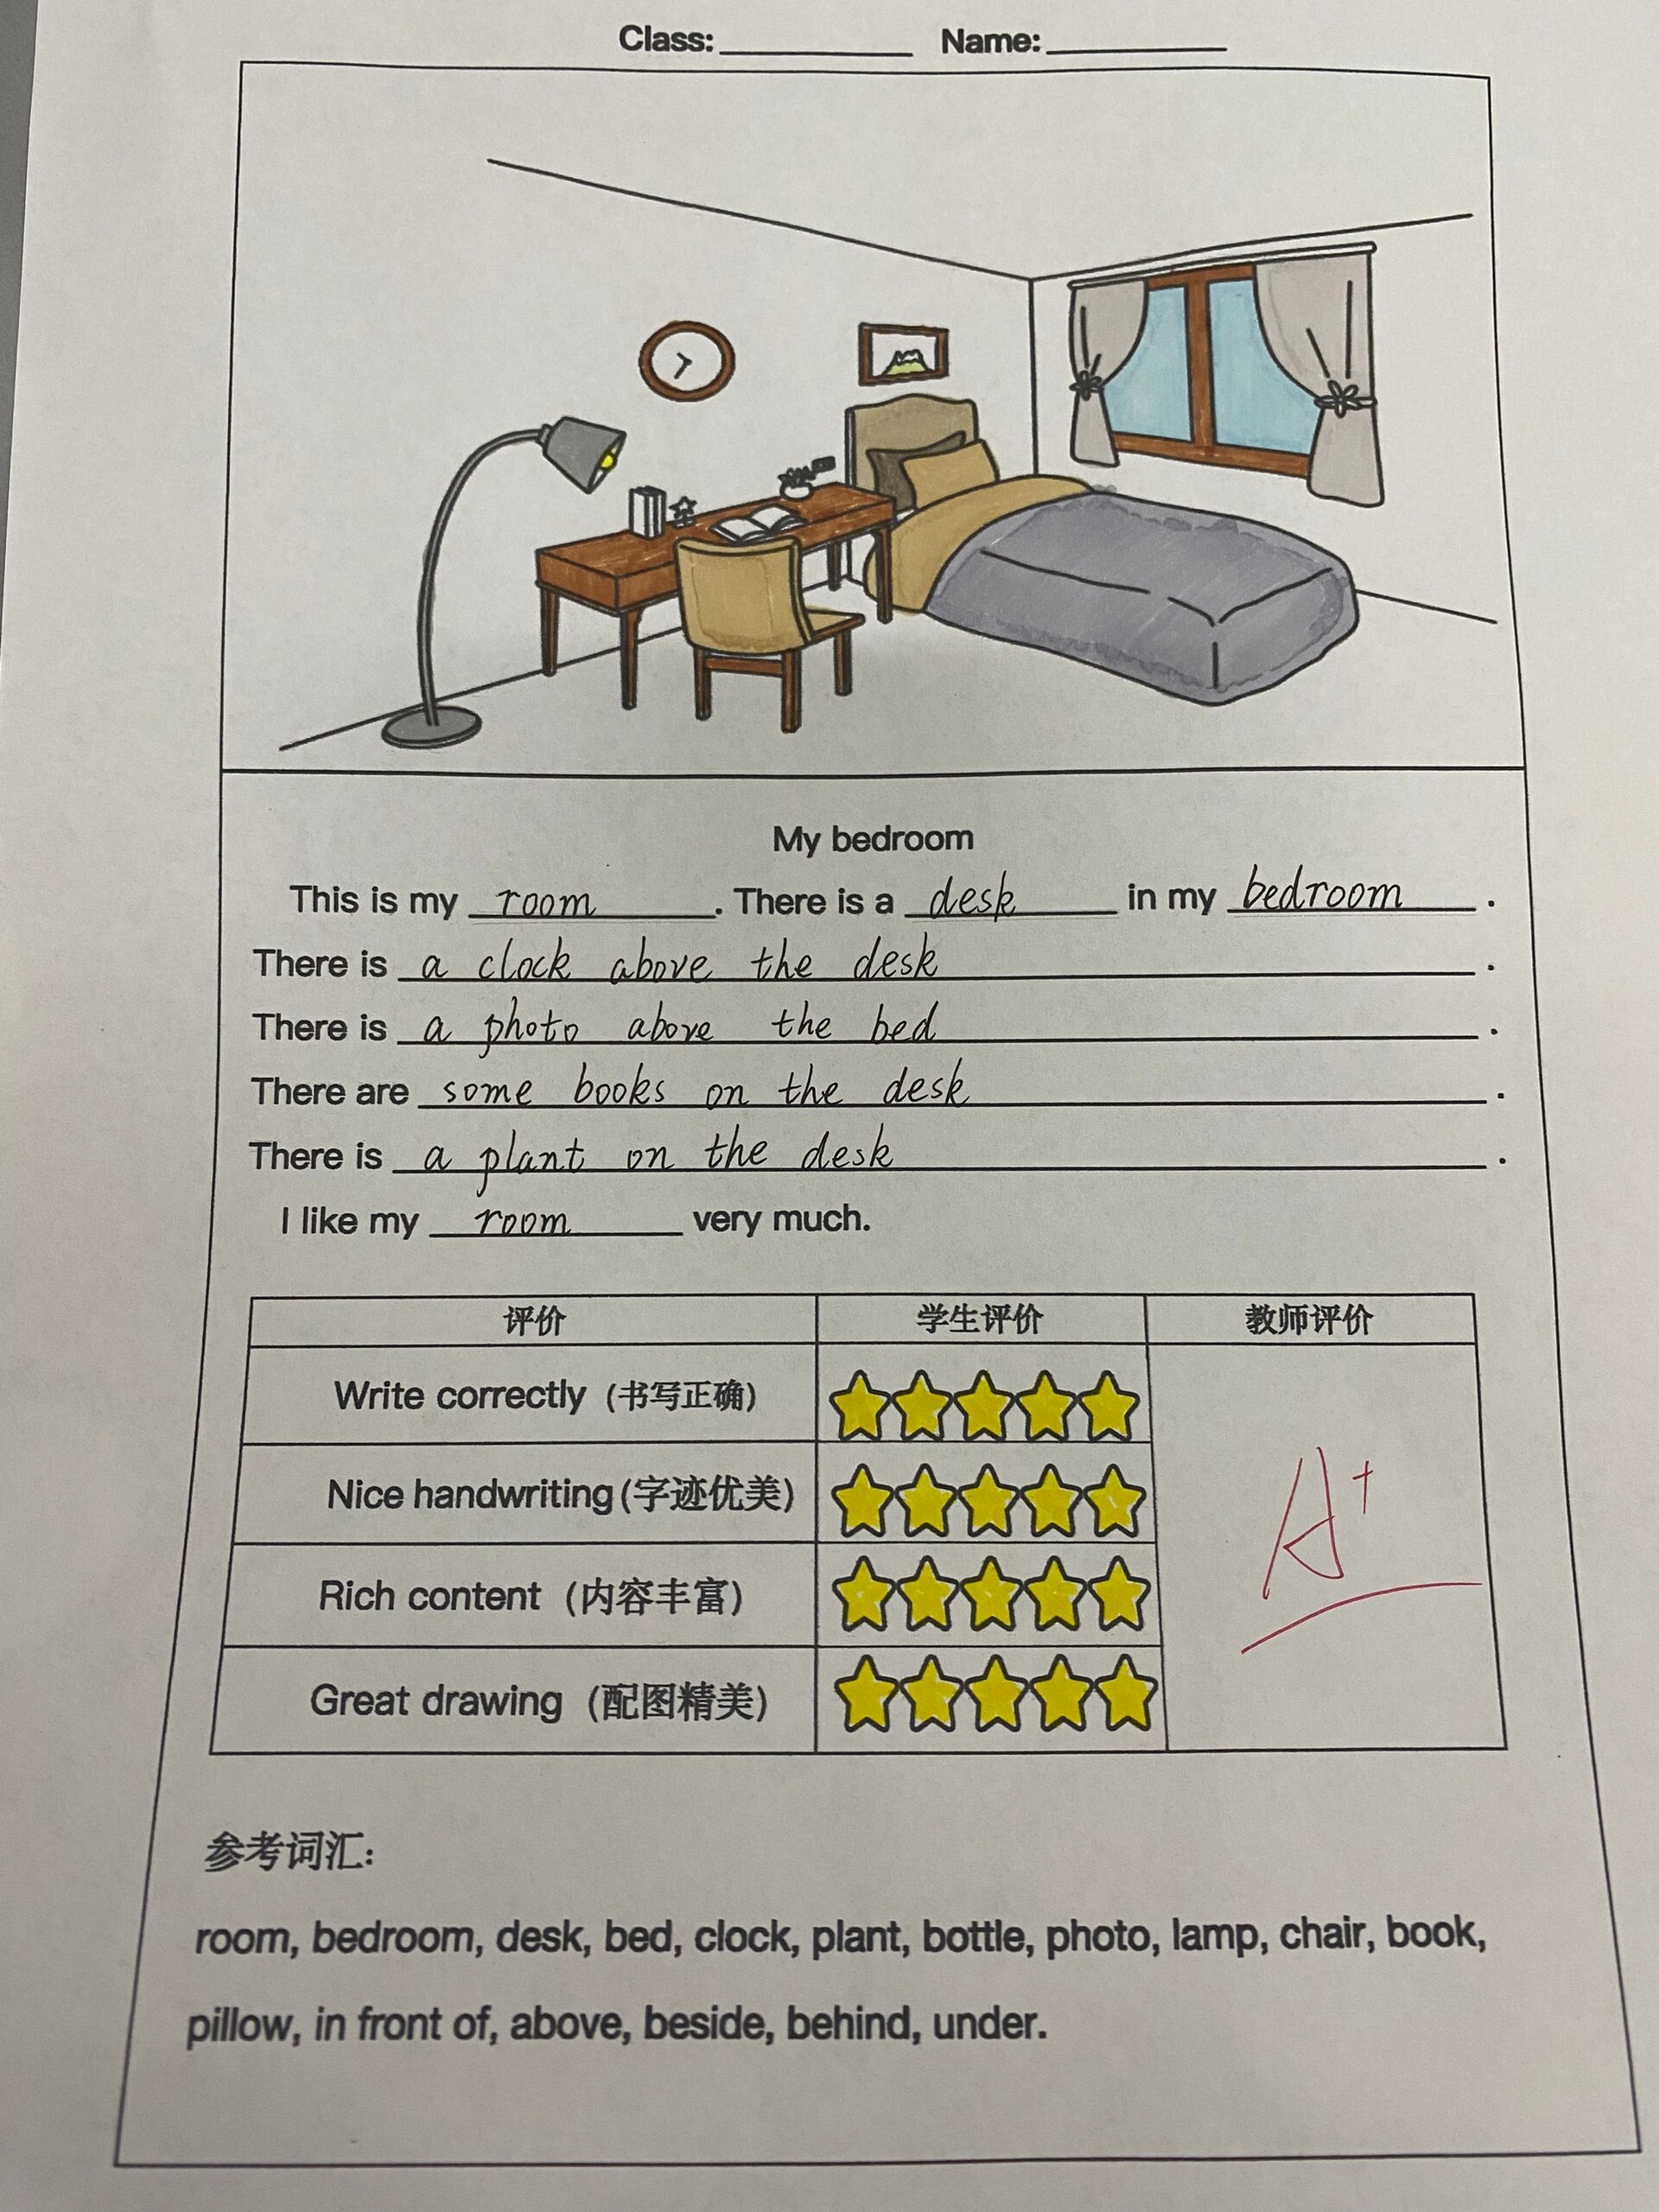 Class:__________ Name:__________
My bedroom
This is my room. There is a desk in my bedroom.
There is a clock above the desk.
There is a photo above the bed.
There are some books on the desk.
There is a plant on the desk.
I like my room very much.
评价 学生评价 教师评价
Write correctly (书写正确)
A+
Nice handwriting (字迹优美)
Rich content (内容丰富)
Great drawing (配图精美)
参考词汇:
room, bedroom, desk, bed, clock, plant, bottle, photo, lamp, chair, book,
pillow, in front of, above, beside, behind, under.